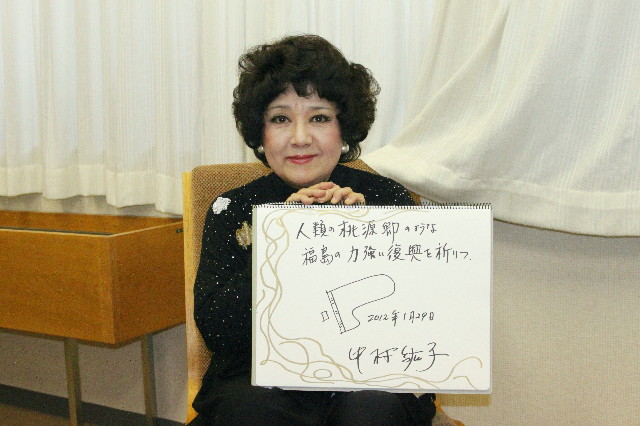 人類の桃源郷のような
福島の力強い復興を祈りつつ、
2012年1月29日
中村紘子